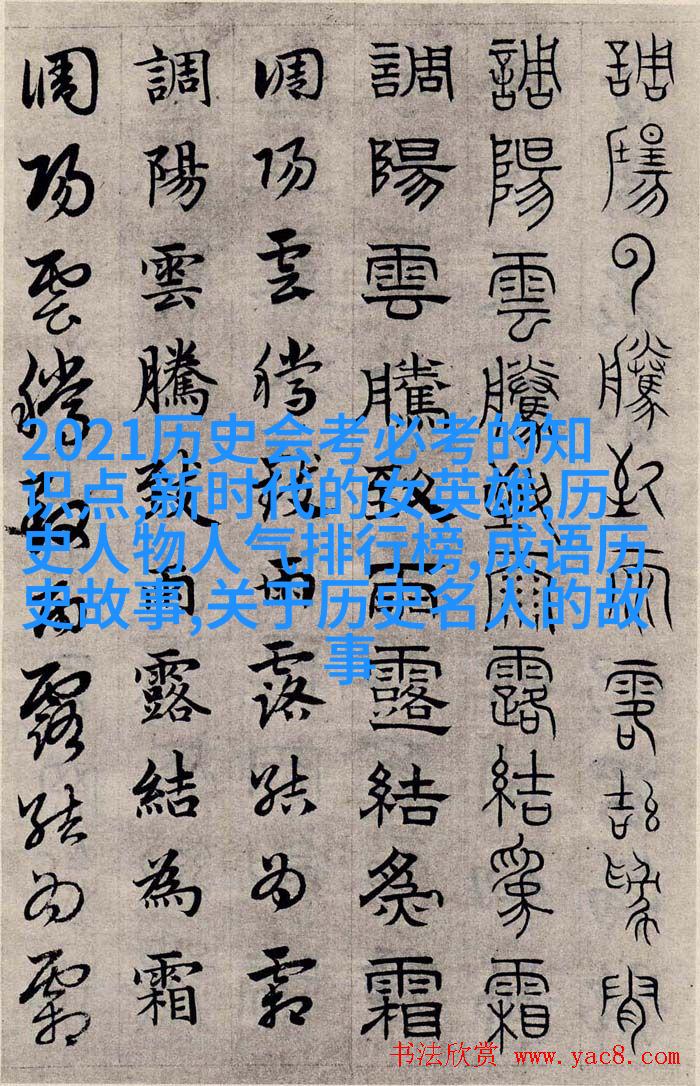 調陽雲騰致雨露結為霜
調陽雲騰致雨露結為霜
調陽雲騰致雨露結為霜
調陽雲騰致雨露結為霜
調陽雲騰致雨露結為霜
調陽雲騰致雨露結為霜
2021历史会考必考的知
识点,新时代的女英雄,历
史人物人气排行榜,成语历
史故事,关于历史名人的故
事
书法欣赏 www.yac8.com